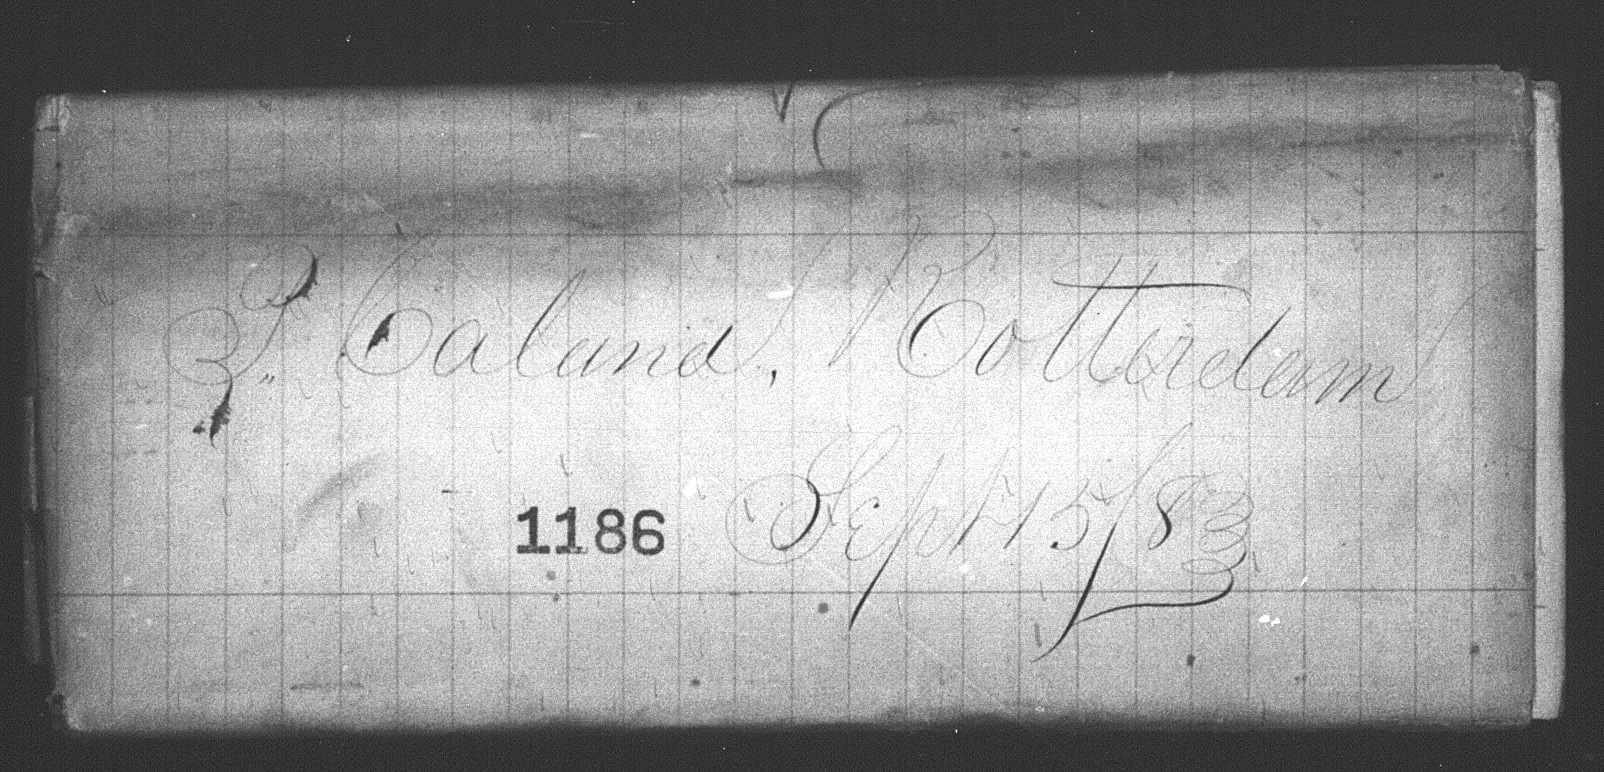 P. Caland, Rotterdam
1186 Sept 15/83